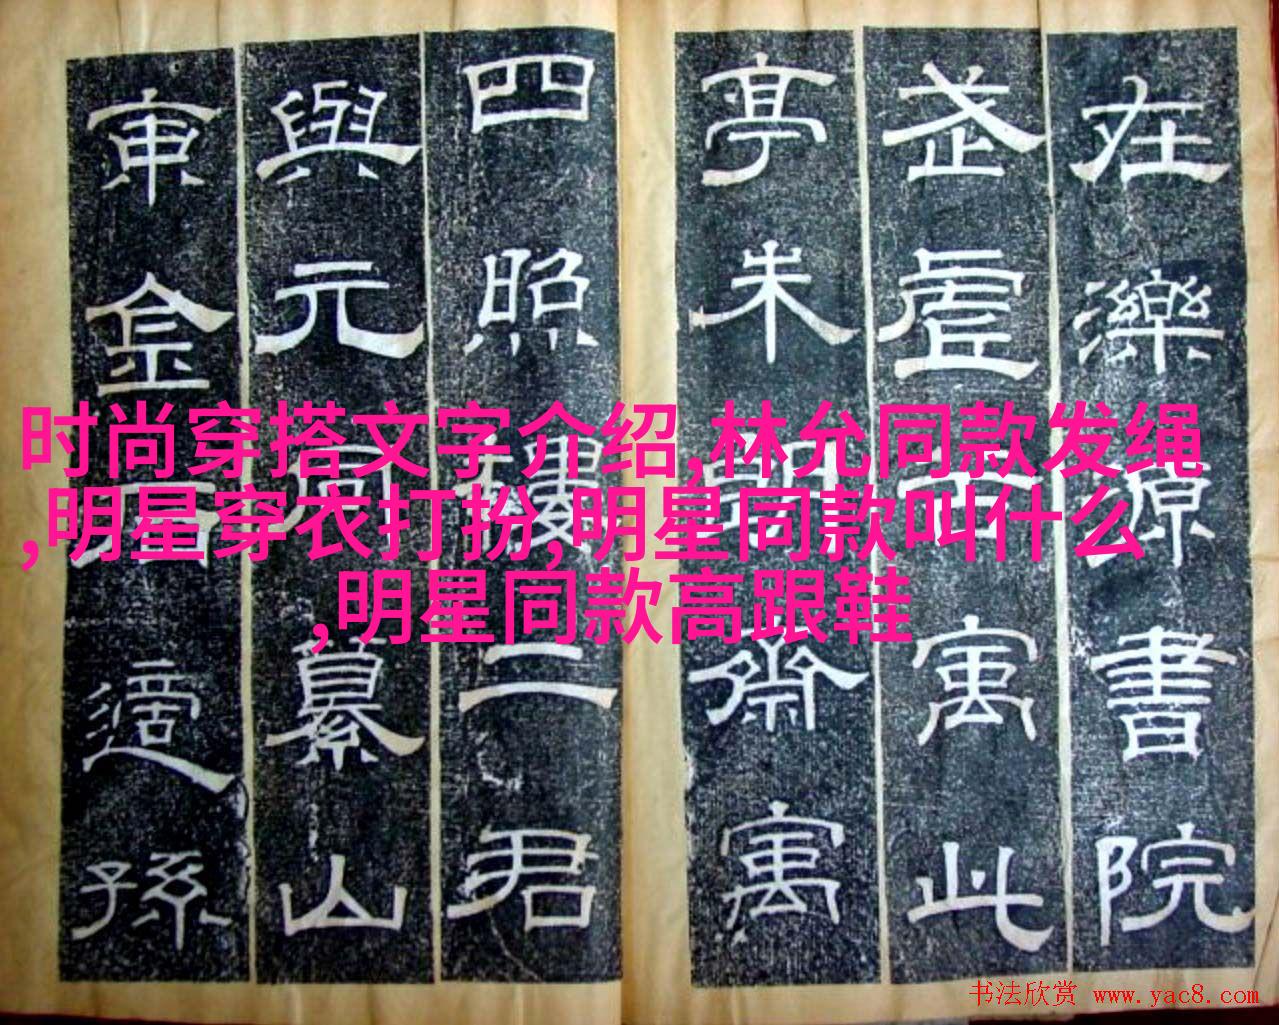 在濼源書院
武虛谷寓此
亭朱朗齋寓
四照樓二君
與元同纂山
東金石適孫
时尚穿搭文字介绍,林允同款发绳
,明星穿衣打扮,明星同款叫什么
,明星同款高跟鞋
书法欣赏 www.yac8.com